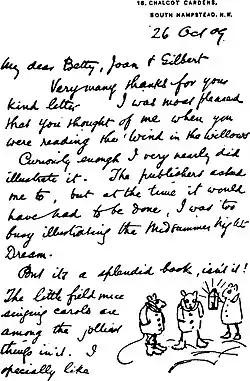 16, CHALCOT GARDENS,
SOUTH HAMPSTEAD, N.W.
26 Oct 09
My dear Betty, Joan & Gilbert
Very many thanks for your
kind letter I was most pleased
that you thought of me when you
were reading the 'Wind in the Willows
Curiously enough I very nearly did
illustrate it. The publishers asked
me to, but at the time it would
have had to be done, I was too
busy illustrating the Midsummer Night
Dream.
But its a splendid book, isn't it!
The little field mice
singing carols are
among the jolliest
things in't. I
specially like